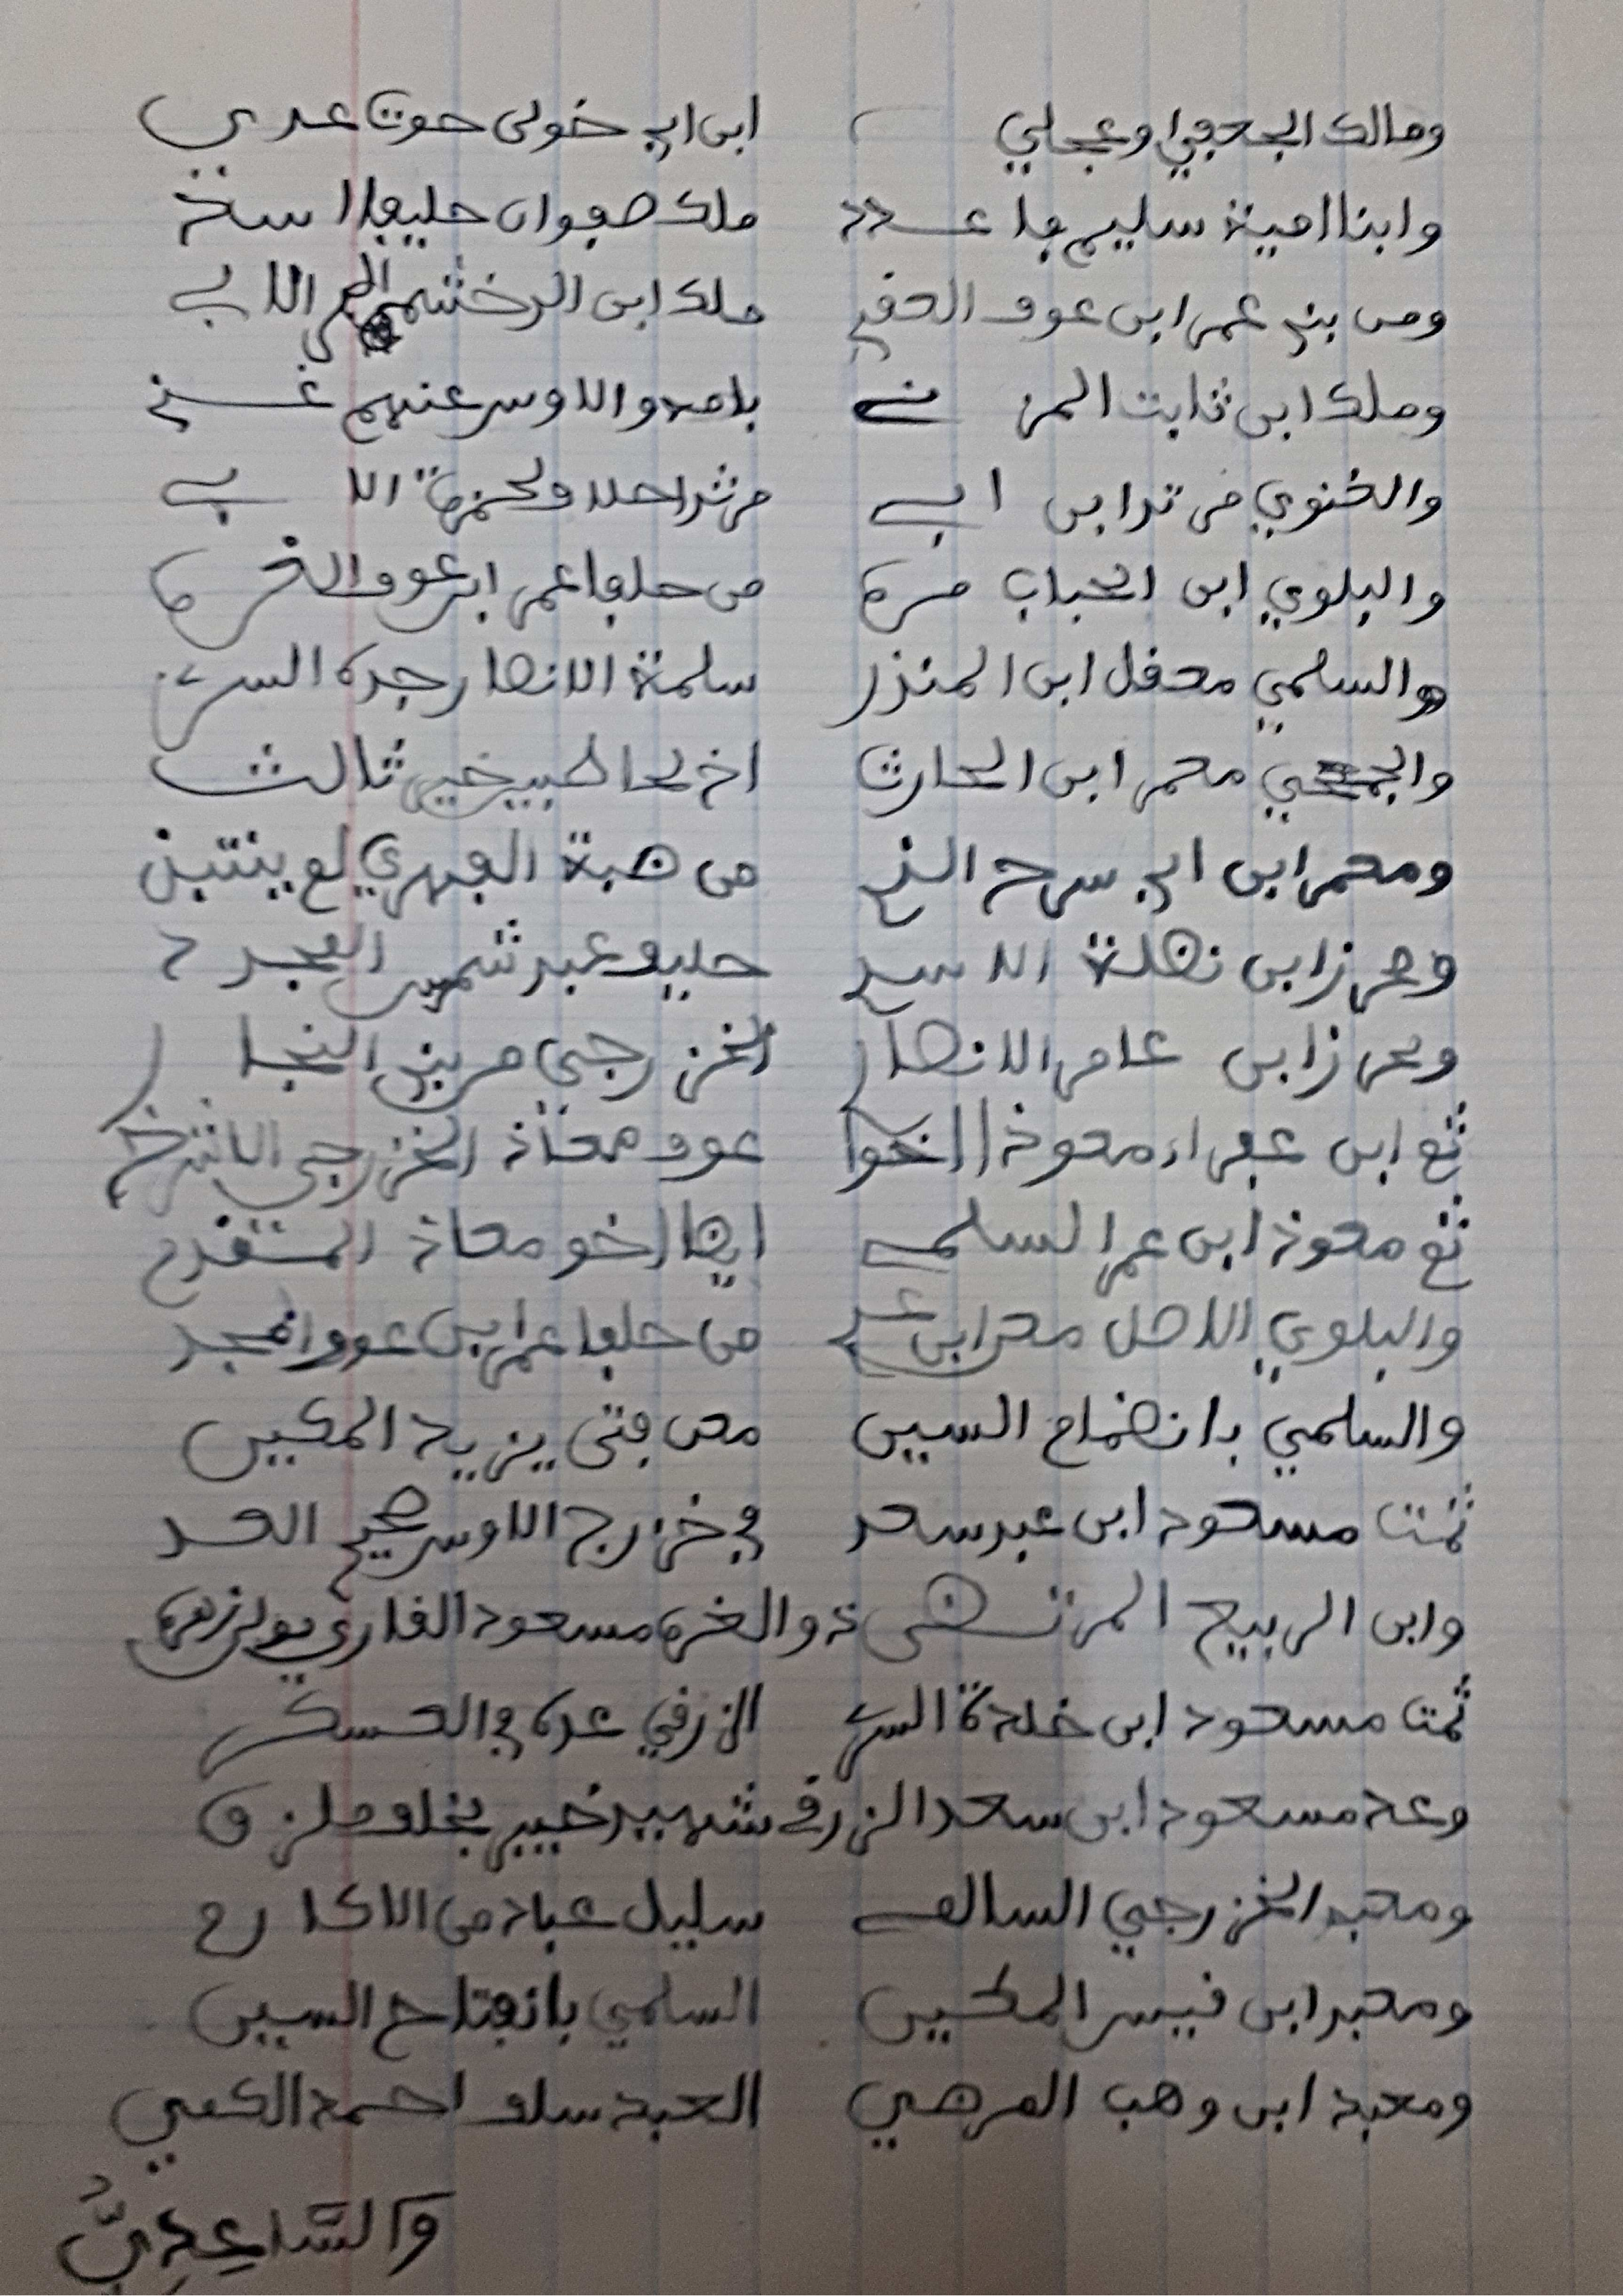 ومالك الجعفي او عجلي ابن ابي خولى حوت عدي
وابنا امية سليم فا عدد ملك صفوان حليفا اسد
ومن بني عمر ابن عوف العقبي ملك ابن الدخشم الابي
وملك ابن ثابت المزني بامه والاوس عنهم غني
والغنوي مرثد ابن ابي مرثد احلاف لحمزة الابي
والبلوي ابن الحباب مرة من حلفا عمر ابن عوف الغرة
والسلمي معقل ابن المنذر سلمة الانصار جده السري
والجمحي معمر ابن الحارث اخ لحاطب خير ثالث
ومعمر ابن ابي سرح الذي من ضبة الفهري لم ينتبذ
ومحرز ابن نضلة الاسدي حليف عبد شمس الممجد
ومحرز ابن عامر الانصار الخزرجي من بني النجار
ثم ابن عفراء معوذ اخو عوف معاذ الخزرجي
ثم معوذ ابن عمر السلمي ايضا اخو معاذ المستقدم
والبلوي الاصل معن ابن عدي من حلفا عمر ابن عوف امجد
والسلمي بانضمام السين معن فتى يزيد المكين
ثمت مسعود ابن عبد سعد في خزرج الاوس صحيح العد
وابن الربيع المرتضى ذو الغره مسعود القاري مولى زهره
ثمت مسعود ابن خلدة السري الزرقي عده في العسكر
وعد مسعود ابن سعد الزرقي شهيد خيبر بخلف ملزق
ومعبد الخزرجي السالمي سليل عباد من الاكارم
ومعبد ابن قيس المكين السلمي بانفتاح السين
ومعبد ابن وهب العرضي العبد سلف احمد الكعبي
والساعدي